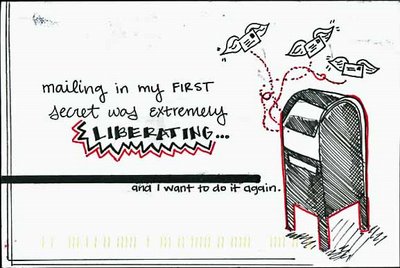 mailing in my FIRST
secret was extremely
LIBERATING...
and I want to do it again.